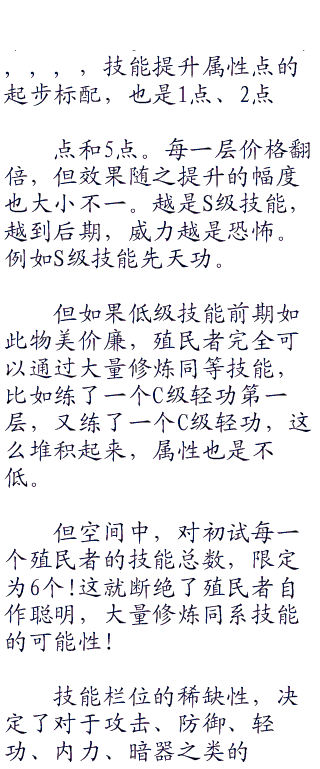 ，，，，技能提升属性点的
起步标配，也是1点、2点
点和5点。每一层价格翻
倍，但效果随之提升的幅度
也大小不一。越是S级技能，
越到后期，威力越是恐怖。
例如S级技能先天功。
但如果低级技能前期如
此物美价廉，殖民者完全可
以通过大量修炼同等技能，
比如练了一个C级轻功第一
层，又练了一个C级轻功，这
么堆积起来，属性也是不
低。
但空间中，对初试每一
个殖民者的技能总数，限定
为6个!这就断绝了殖民者自
作聪明，大量修炼同系技能
的可能性!
技能栏位的稀缺性，决
定了对于攻击、防御、轻
功、内力、暗器之类的